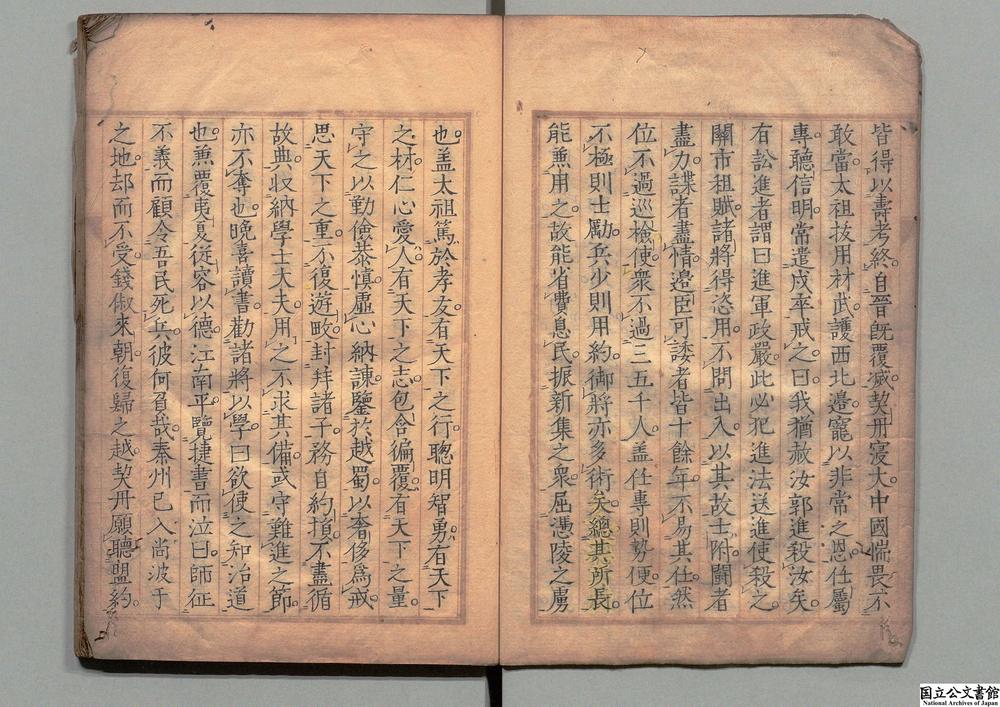 皆得以壽考終自晉既覆滅契丹寖大中國惴畏不
敢當太祖拔用材武護西北邊寵以非常之恩任屬
專聽信明常遣戍卒戒之曰我猶赦汝郭進殺汝矣
有訟進者謂曰進軍政嚴此必犯進法送進使殺之
關市租賦諸將得恣用不問出入以其故士附鬪者
盡力諜者盡情邊臣可諉者皆十餘年不易其任然
位不過巡檢使衆不過三五千人盖任專則勢便位
不極則士勵兵少則用約御將亦多術矣總其所長
能兼用之故能省費息民振新集之衆屈憑陵之虜
也盖太祖篤於孝友有天下之行聰明智勇有天下
之材仁心愛人有天下之志包含徧覆有天下之量
守之以勤儉恭慎虛心納諫鑒於越蜀以奢侈爲戒
思天下之重不復遊畋封拜諸子務自約損不盡循
故典収納學士大夫用之不求其備武守難進之節
亦不奪也晚喜讀書勸諸將以學曰欲使之知治道
也兼覆夷夏從容以德江南平覽捷書而泣曰師征
不義而顧令吾民死兵彼何負哉秦州已入尚波于
之地却而不受錢俶來朝復歸之越契丹願聽盟約
国立公文書館
National Archives of Japan